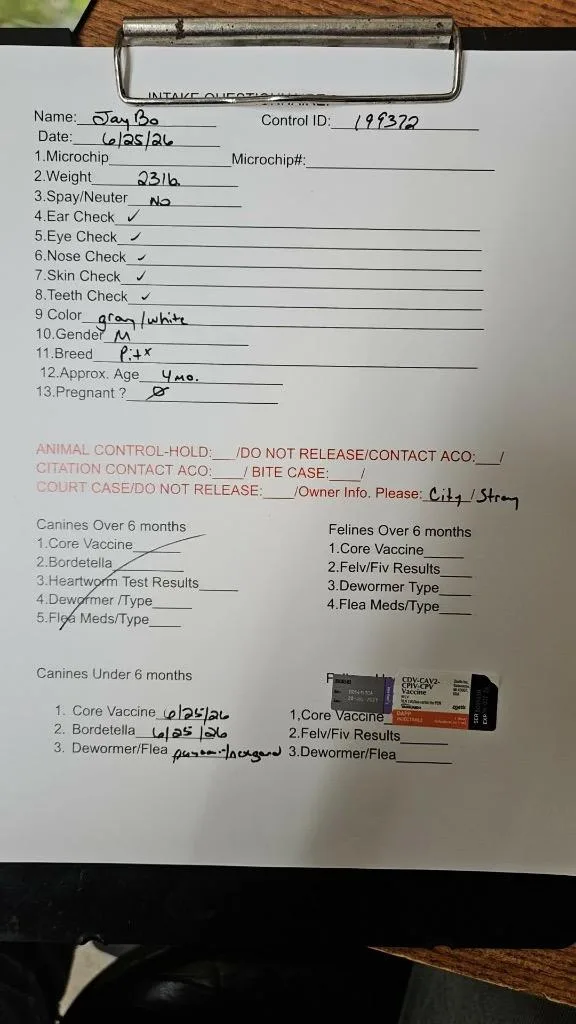 INTAKE QUESTIONNAIRE
Name: Jay Bo Control ID: 199372
Date: 6/25/26
1.Microchip Microchip#:
2.Weight 23lb.
3.Spay/Neuter No
4.Ear Check ✓
5.Eye Check ✓
6.Nose Check ✓
7.Skin Check ✓
8.Teeth Check ✓
9 Color gray/white
10.Gender M
11.Breed Pitx
12.Approx. Age 4 mo.
13.Pregnant ? Ø
ANIMAL CONTROL-HOLD:___/DO NOT RELEASE/CONTACT ACO:___/
CITATION CONTACT ACO:____/ BITE CASE:____/
COURT CASE/DO NOT RELEASE:____/Owner Info. Please: City/Stray
Canines Over 6 months
1.Core Vaccine
2.Bordetella
3.Heartworm Test Results
4.Dewormer /Type
5.Flea Meds/Type
Felines Over 6 months
1.Core Vaccine
2.Felv/Fiv Results
3.Dewormer Type
4.Flea Meds/Type
Canines Under 6 months
1. Core Vaccine 6/25/26
2. Bordetella 6/25/26
3. Dewormer/Flea
CDV-CAV2-
CPIV-CPV
Vaccine
zoetis
DAPP
SER
EXP
1,Core Vaccine
2.Felv/Fiv Results
3.Dewormer/Flea